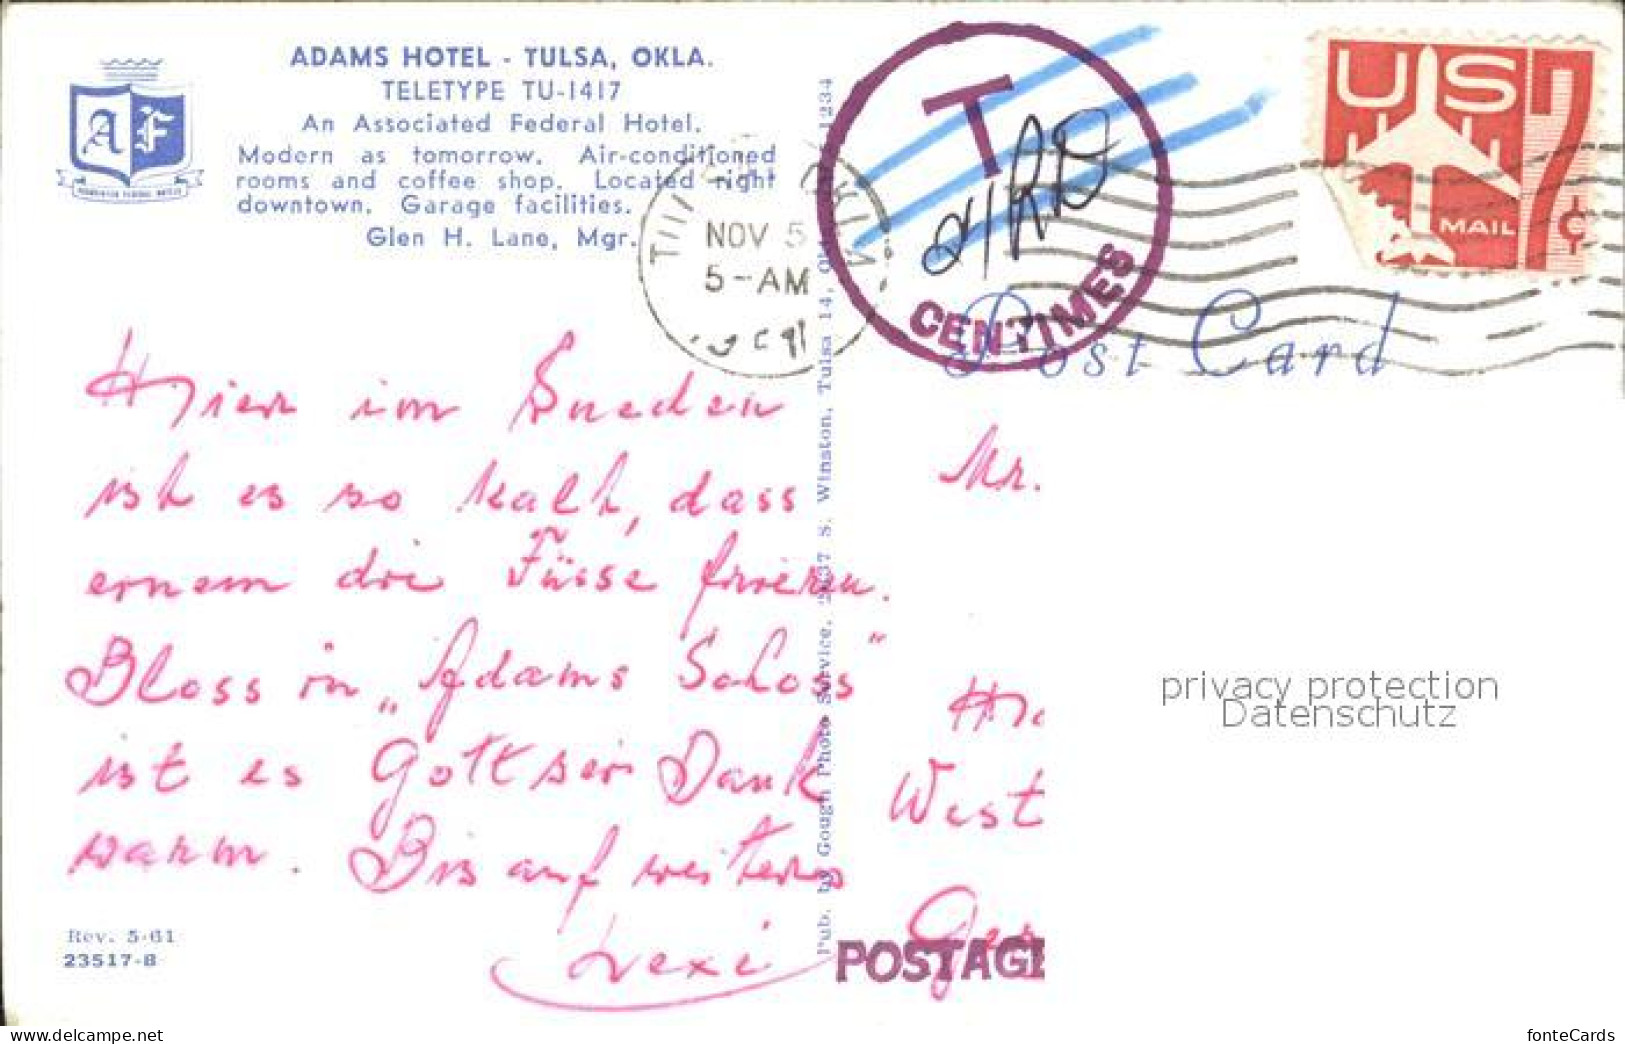 ADAMS HOTEL - TULSA, OKLA.
TELETYPE TU-1417
An Associated Federal Hotel.
Modern as tomorrow. Air-conditioned
rooms and coffee shop. Located right
downtown. Garage facilities.
Glen H. Lane, Mgr.
AF
NOV 5
5-AM
T
CENTIMES
US
MAIL
7¢
Post Card
Hier im Sueden
ist es so kalt, dass
einem die Füsse frieren.
Bloss in „Adams Schoss"
ist es Gott sei Dank
warm. Bis auf weiteres
Rev. 5-61
23517-B
Pub. by Gough Photo Service, 2037 S. Winston, Tulsa 14, Okla.
1234
Mr.
West
Ger
POSTAGE
privacy protection
Datenschutz
www.delcampe.net
fonteCards